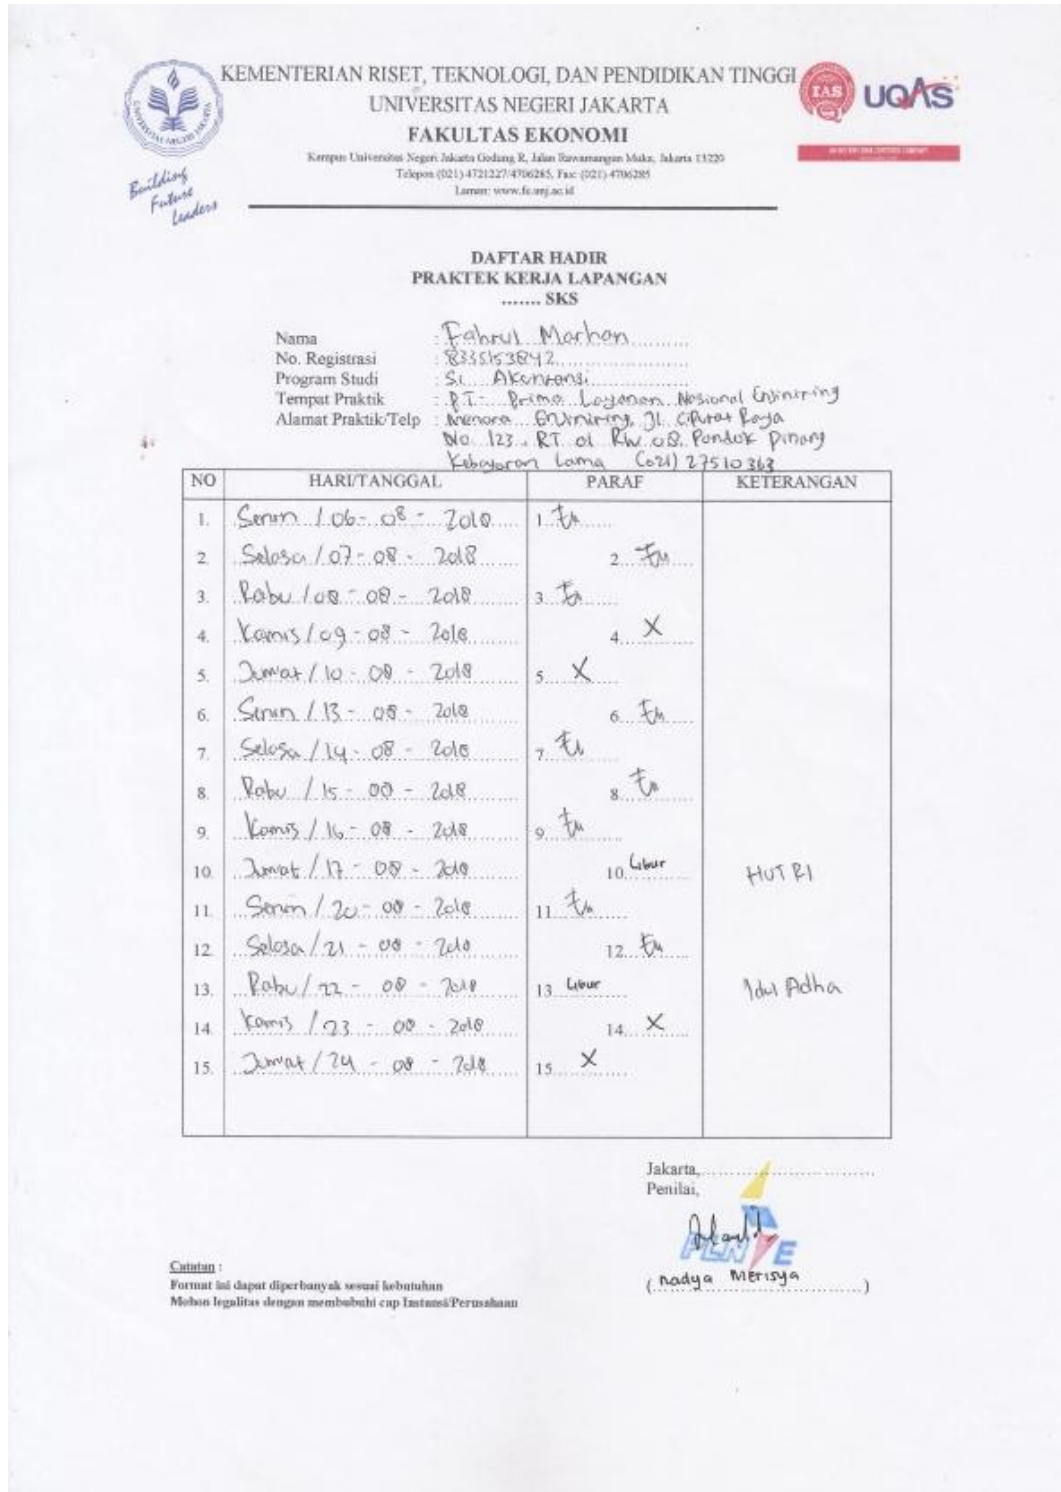 KEMENTERIAN RISET, TEKNOLOGI, DAN PENDIDIKAN TINGGI
UNIVERSITAS NEGERI JAKARTA
FAKULTAS EKONOMI
Kampus Universitas Negeri Jakarta Gedung R, Jalan Rawamangun Muka, Jakarta 13220
Telepon (021) 4721227/4706285, Fax: (021) 4706285
Laman: www.fe.unj.ac.id
UNIVERSITAS NEGERI JAKARTA
Building
Future
Leaders
IAS
UQAS
DAFTAR HADIR
PRAKTEK KERJA LAPANGAN
....... SKS
Nama : Fahrul Marhan
No. Registrasi : 8335153842
Program Studi : S1 Akuntansi
Tempat Praktik : PT. Prima Layanan Nasional Enjiniring
Alamat Praktik/Telp : Menara Enjiniring, Jl. Ciputat Raya
No. 123, RT 01 RW 08, Pondok Pinang
Kebayoran Lama (021) 27510363
NO HARI/TANGGAL PARAF KETERANGAN
1. Senin / 06 - 08 - 2018 1.
2. Selasa / 07 - 08 - 2018 2.
3. Rabu / 08 - 08 - 2018 3.
4. Kamis / 09 - 08 - 2018 4. X
5. Jumat / 10 - 08 - 2018 5. X
6. Senin / 13 - 08 - 2018 6.
7. Selasa / 14 - 08 - 2018 7.
8. Rabu / 15 - 08 - 2018 8.
9. Kamis / 16 - 08 - 2018 9.
10. Jumat / 17 - 08 - 2018 10. Libur HUT RI
11. Senin / 20 - 08 - 2018 11
12. Selasa / 21 - 08 - 2018 12.
13. Rabu / 22 - 08 - 2018 13. Libur Idul Adha
14. Kamis / 23 - 08 - 2018 14. X
15. Jumat / 24 - 08 - 2018 15. X
Jakarta,
Penilai,
PLN E
(Nadya Merisya)
Catatan :
Format ini dapat diperbanyak sesuai kebutuhan
Mohon legalitas dengan membubuhi cap Instansi/Perusahaan